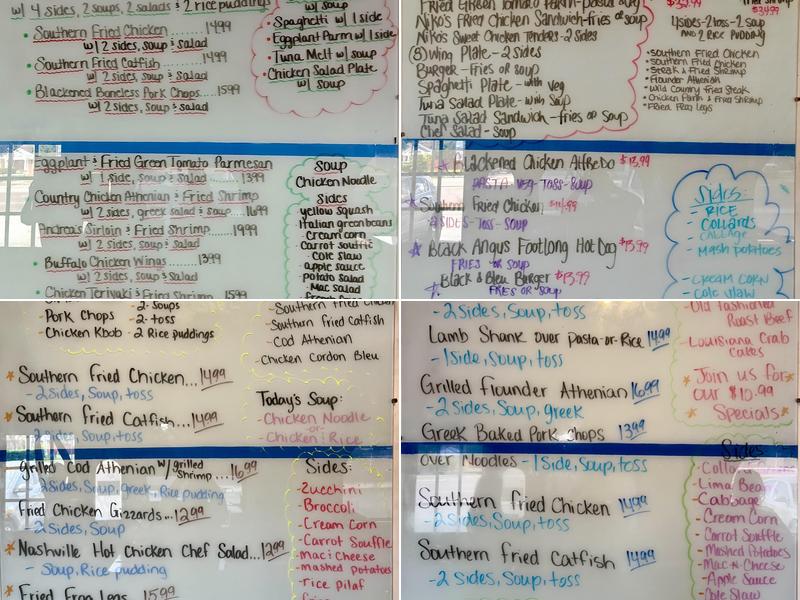 w/ 4 sides, 2 soups, 2 salads & 2 rice puddings
• Southern Fried Chicken......1499
w/ 2 sides, soup & salad
• Southern Fried Catfish......1499
w/ 2 sides, soup & salad
• Blackened Boneless Pork Chops....1599
w/ 2 sides, soup & salad
w/ soup
• Spaghetti w/ 1 side
• Eggplant Parm w/ 1 side
• Tuna Melt w/ soup
• Chicken Salad Plate
w/ soup
Eggplant & Fried Green Tomato Parmesan
w/ 1 side, soup & Salad.....1399
Country Chicken Athenian & Fried Shrimp
w/ 2 sides, greek salad & soup...1699
Andrea's Sirloin & Fried Shrimp.......1999
w/ 2 sides, soup & salad
• Buffalo Chicken Wings.....1399
w/ 2 sides, soup & salad
Chicken Teriyaki & Fried Shrimp...1599
Soup
Chicken Noodle
Sides
yellow squash
Italian green beans
Cream corn
Carrot souffle
Cole slaw
apple sauce
potato salad
Mac salad
Fried Green Tomato Parm-Pasta
Niko's Fried Chicken Sandwich-fries or soup
Niko's Sweet Chicken Tenders-2 Sides
(5) Wing Plate-2 sides
Burger-fries or soup
Spaghetti Plate-with veg
Tuna Salad Plate-with Soup
Tuna Salad Sandwich-fries or Soup
Chef Salad-Soup
$39.99
4 sides-2 toss-2 soup
AND 2 RICE PUDDING
• Southern Fried Chicken
• Southern Fried Chicken
• Steak & Fried Shrimp
• Flounder Athenian
• Wild Country Fried Steak
• Chicken Parm & Fried Shrimp
• Fried Frog Legs
Blackened Chicken Alfredo $13.99
PASTA-VEG-TOSS-SOUP
Southern Fried Chicken
2 SIDES-TOSS-SOUP
Black Angus Footlong Hot Dog $13.99
FRIES OR SOUP
Black & Bleu Burger $13.99
FRIES OR SOUP
Sides:
- RICE
- Collards
- Cabbage
- Mash potatoes
- CREAM CORN
- Cole slaw
Pork Chops
Chicken Kbob
-2-Soups
-2-toss
-2 Rice puddings
- Southern fried Catfish
- Cod Athenian
- Chicken Cordon Bleu
Southern Fried Chicken...1499
-2 Sides, Soup, toss
Southern Fried Catfish....1499
2 sides, Soup, toss
Today's Soup:
- Chicken Noodle
-or-
- Chicken & Rice
grilled Cod Athenian w/ grilled Shrimp...1699
-2 Sides, Soup, greek, Rice pudding
Fried Chicken Gizzards...1299
-2 Sides, Soup
Nashville Hot Chicken Chef Salad...1299
- Soup, Rice pudding
Fried Frog Legs 1599
Sides:
-Zucchini
-Broccoli
-Cream Corn
-Carrot Souffle
-Mac i Cheese
-mashed potatoes
-rice pilaf
-2 Sides, Soup, toss
Lamb Shank over pasta-or-Rice 1499
-1 Side, Soup, toss
Grilled flounder Athenian 1699
-2 sides, Soup, greek
Greek Baked Pork Chops 1399
-Old Fashioned
Roast Beef
-Louisiana Crab
Cakes
Join us for
our $10.99
Specials
Over Noodles-1 Side, Soup, toss
Southern fried Chicken 1499
-2 Sides, Soup, toss
Southern fried Catfish 1499
-2 Sides, Soup, toss
Sides
-Lima Bean
-Cabbage
-Cream Corn
-Carrot Souffle
-Mashed Potatoes
-Mac-n-Cheese
-Apple Sauce
-Cole Slaw